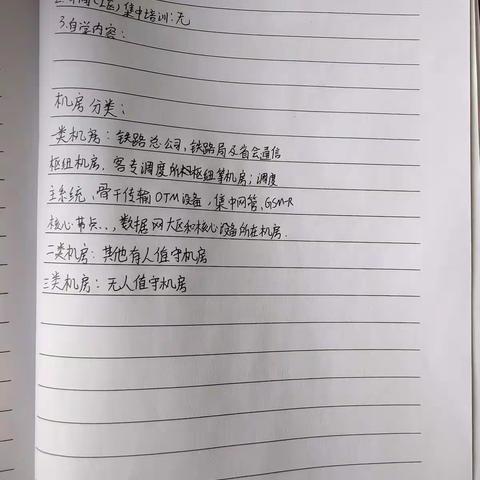 集中培训:无
3.自学内容:
机房分类:
一类机房:铁路总公司,铁路局及省会通信
枢纽机房,客专调度所枢纽等机房;调度
主系统、骨干传输OTM设备,集中网管、GSM-R
核心节点..,数据网大区和核心设备所在机房.
二类机房:其他有人值守机房
三类机房:无人值守机房